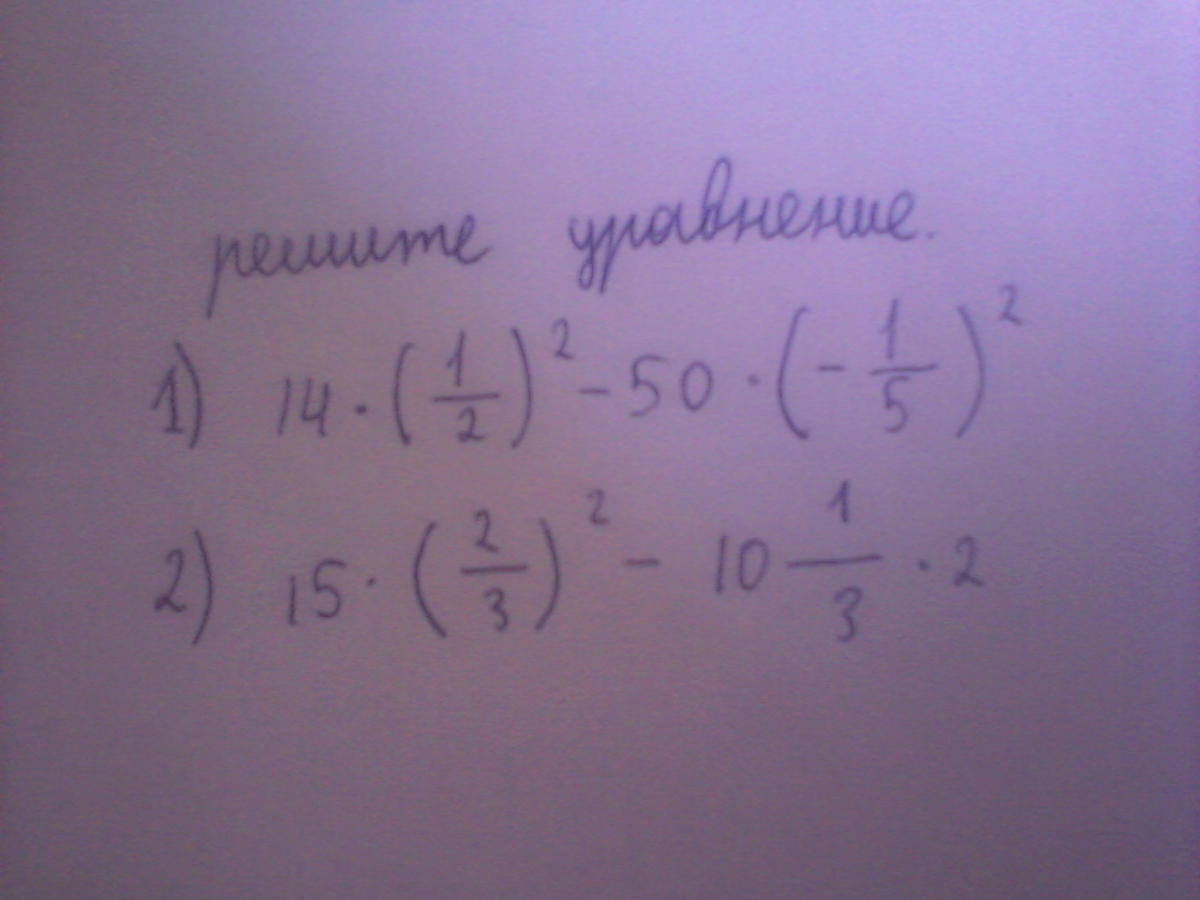 решите уравнение.
1) 14 · (1/2)² - 50 · (-1/5)²
2) 15 · (2/3)² - 10 1/3 · 2